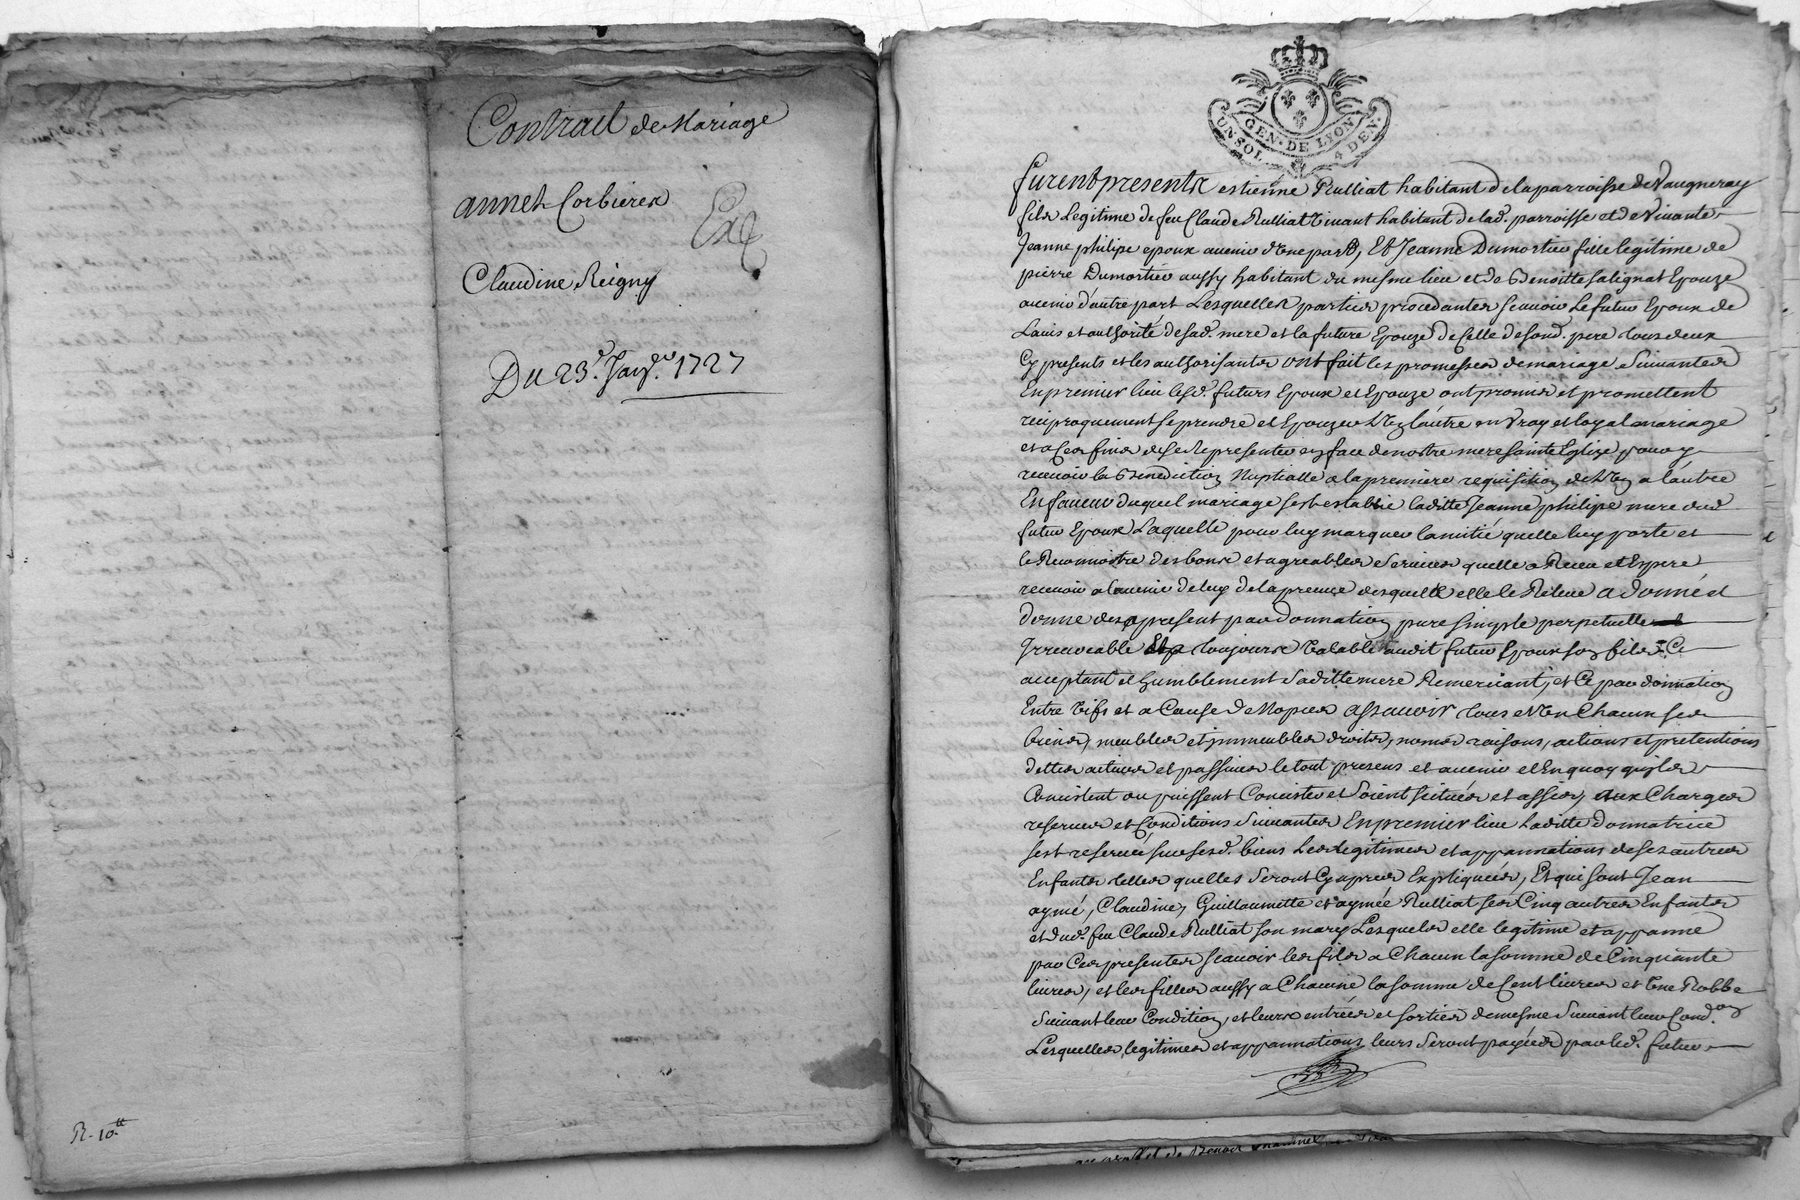 Contract de Mariage
annet Corbieres
Exp
Claudine Reigny
Du 23.e Janv.er 1727
R. 10.tt
GEN. DE LYON
UN SOL 4 DEN.
furent presents estienne Rulliat habitant de la parroisse de Vaugneray
fils Legitime de feu Claude Rulliat Vivant habitant de lad. parroisse et de Vivante
Jeanne philipe epoux avenir d'Une part, Et Jeanne Dumortier fille legitime de
pierre Dumortier aussy habitant du mesme lieu et de Benoitte Salignat Epouze
avenir d'autre part Lesquelles parties procedantes scauoir Le futur Epoux de
Lauis et authorité de sad. mere et la future Epouze de Celle de sond. pere tous deux
Cy presents et les authorisantes ont fait les promesses de mariage Suivantes
En premier lieu lesd. futurs Epoux et Epouze ont promis et promettent
reciproquement se prendre et Epouzer L'Un L'autre en Vray et loyal mariage
et a Ces fins de se Representer en face de nostre mere sainte Eglize pour y
recevoir la Benediction Nuptialle a la premiere requisition de L'Un a L'autre
En faueur duquel mariage s'est establie laditte Jeanne philipe mere dud.
futur Epoux Laquelle pour luy marquer l'amitié quelle luy porte et
le Reconnoistre des bons et agreables Services quelle a Receu et Espere
recevoir a l'auenir de luy de la preuue desquels elle le Releue a donné et
donne des apresent par donnation pure simple perpetuelle
Irreuocable Et a toujours Valable audit futur Epoux son fils Ce
acceptant et humblement saditte mere Remerciant, et Ce par donnation
Entre Vifs et a Cause de Nopces assauoir tous et Un Chacun ses
biens, meubles et immeubles droits, noms raisons, actions et pretentions
dettes actiues et passiues le tout presens et auenir et En quoy quils
Consistent ou puissent Consister et soient scitués et assis, aux Charges
reserues et Conditions Suivantes En premier lieu Laditte donnatrice
s'est reservé sur sesd. biens Les legitimes et appannations de ses autres
Enfants telles quelles seront Cy apres Expliquées, Et qui sont Jean
aymé, Claudine, Guillaumette et aymée Rulliat ses Cinq autres Enfants
et dud. feu Claude Rulliat son mary Lesquels elle legitime et appanne
par Ces presentes scauoir les fils a Chacun la somme de Cinquante
liures, et les filles aussy a Chacune la somme de Cent liures et Une Robbe
Suivant leur Condition, et leurs entrées et sorties de mesme Suivant leur Cond.on
Lesquelles legitimes et appannations leurs seront payées par led. futur